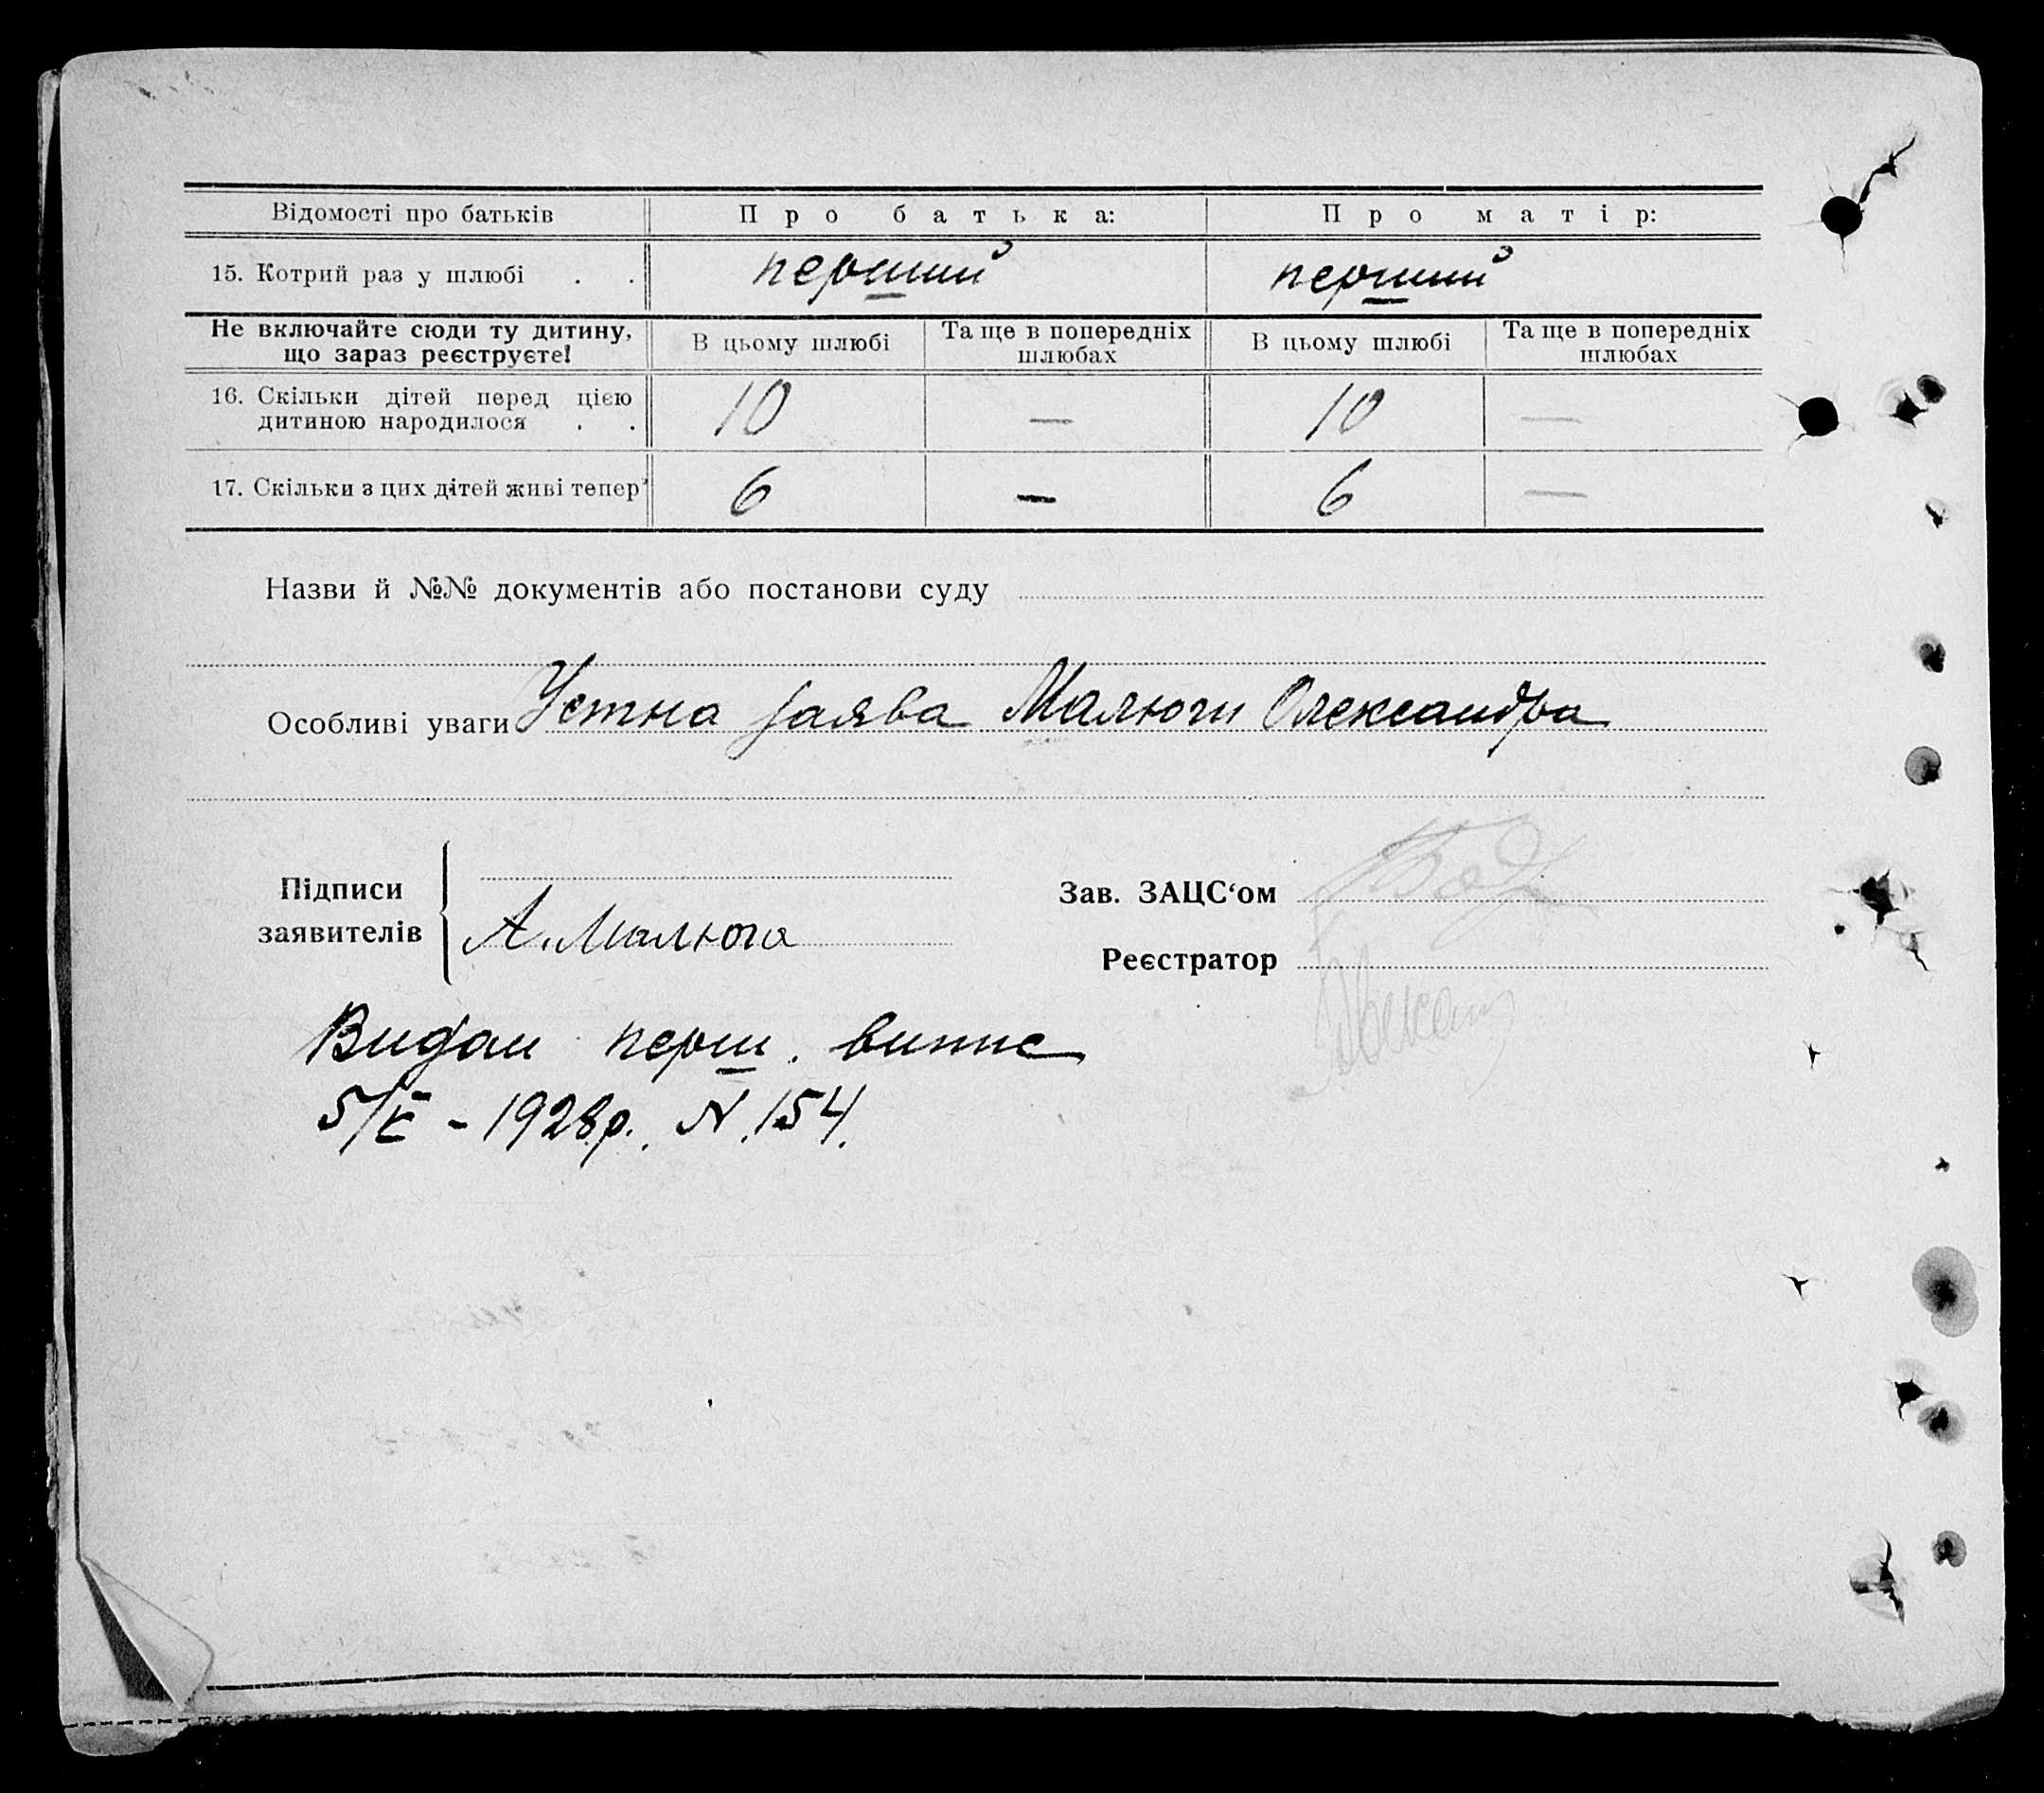 Відомості про батьків Про батька: Про матір:
15. Котрий раз у шлюбі . . перший перший
Не включайте сюди ту дитину, що зараз реєструєте! В цьому шлюбі Та ще в попередніх шлюбах В цьому шлюбі Та ще в попередніх шлюбах
16. Скільки дітей перед цією дитиною народилося . . 10 — 10 —
17. Скільки з цих дітей живі тепер 6 — 6 —
Назви й №№ документів або постанови суду
Особливі уваги Устна заява Малюги Олександра
Підписи заявителів А. Малюга
Зав. ЗАЦС‘ом
Реєстратор
Видан перш. випис
5/ - 1928р. N. 154.